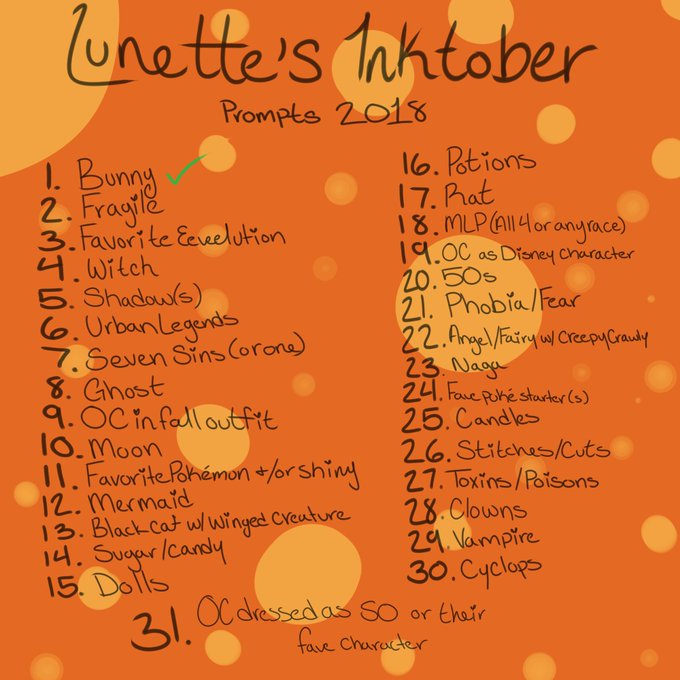 Lunette's Inktober
Prompts 2018
1. Bunny ✓
2. Fragile
3. Favorite Eeveelution
4. Witch
5. Shadow(s)
6. Urban Legends
7. Seven Sins (or one)
8. Ghost
9. OC in fall outfit
10. Moon
11. Favorite Pokémon +/or shiny
12. Mermaid
13. Black cat w/ winged creature
14. Sugar/candy
15. Dolls
16. Potions
17. Rat
18. MLP (All 4 or any race)
19. OC as Disney character
20. 50s
21. Phobia/Fear
22. Angel/Fairy w/ Creepy Crawly
23. Naga
24. Fave poké starter(s)
25. Candles
26. Stitches/Cuts
27. Toxins/Poisons
28. Clowns
29. Vampire
30. Cyclops
31. OC dressed as SO or their
fave character